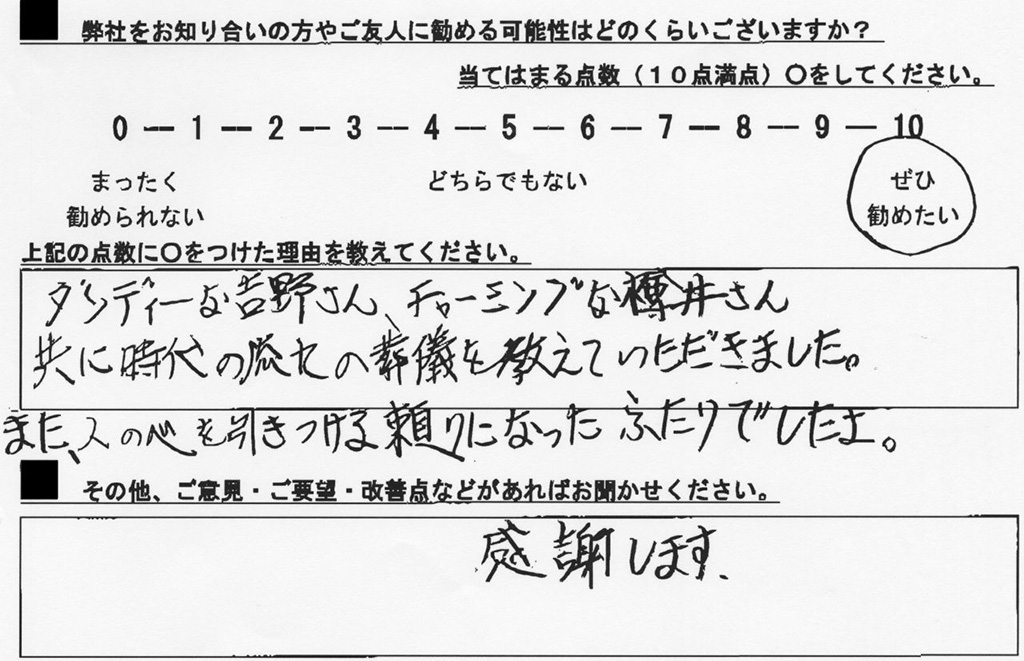 弊社をお知り合いの方やご友人に勧める可能性はどのくらいございますか？
当てはまる点数（１０点満点）〇をしてください。
0 -- 1 -- 2 -- 3 -- 4 -- 5 -- 6 -- 7 -- 8 -- 9 -- 10
まったく どちらでもない ぜひ
勧められない 勧めたい
上記の点数に〇をつけた理由を教えてください。
ダンディーな吉野さん、チャーミングな井さん
共に時代の流れの葬儀を教えていただきました。
また、人の心を引きつける頼りになったふたりでしたよ。
その他、ご意見・ご要望・改善点などがあればお聞かせください。
感謝します.